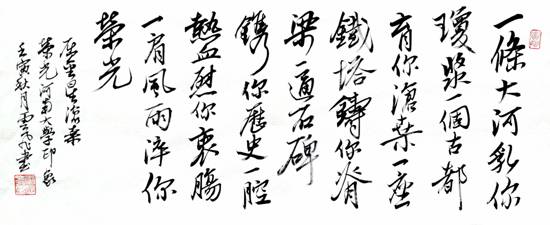 一條大河乳你
瓊漿一個古都
育你滄桑一座
鐵塔鑄你脊
梁一通石碑
鐫你歷史一腔
熱血慰你衷腸
一肩風雨淬你
榮光
屈金星滄桑
榮光河南大學印象
壬寅秋月雲書